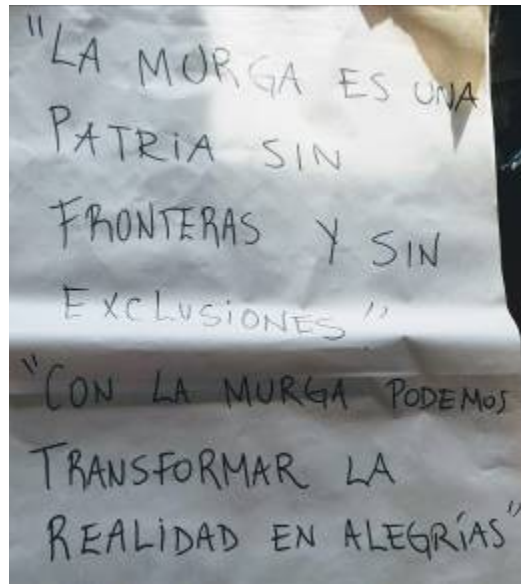 "LA MURGA ES UNA
PATRiA SIN
FRONTERAS Y SIN
EXCLUSiONES"
"CON LA MURGA PODEMOS
TRANSFORMAR LA
REALiDAD EN ALEGRÍAS"